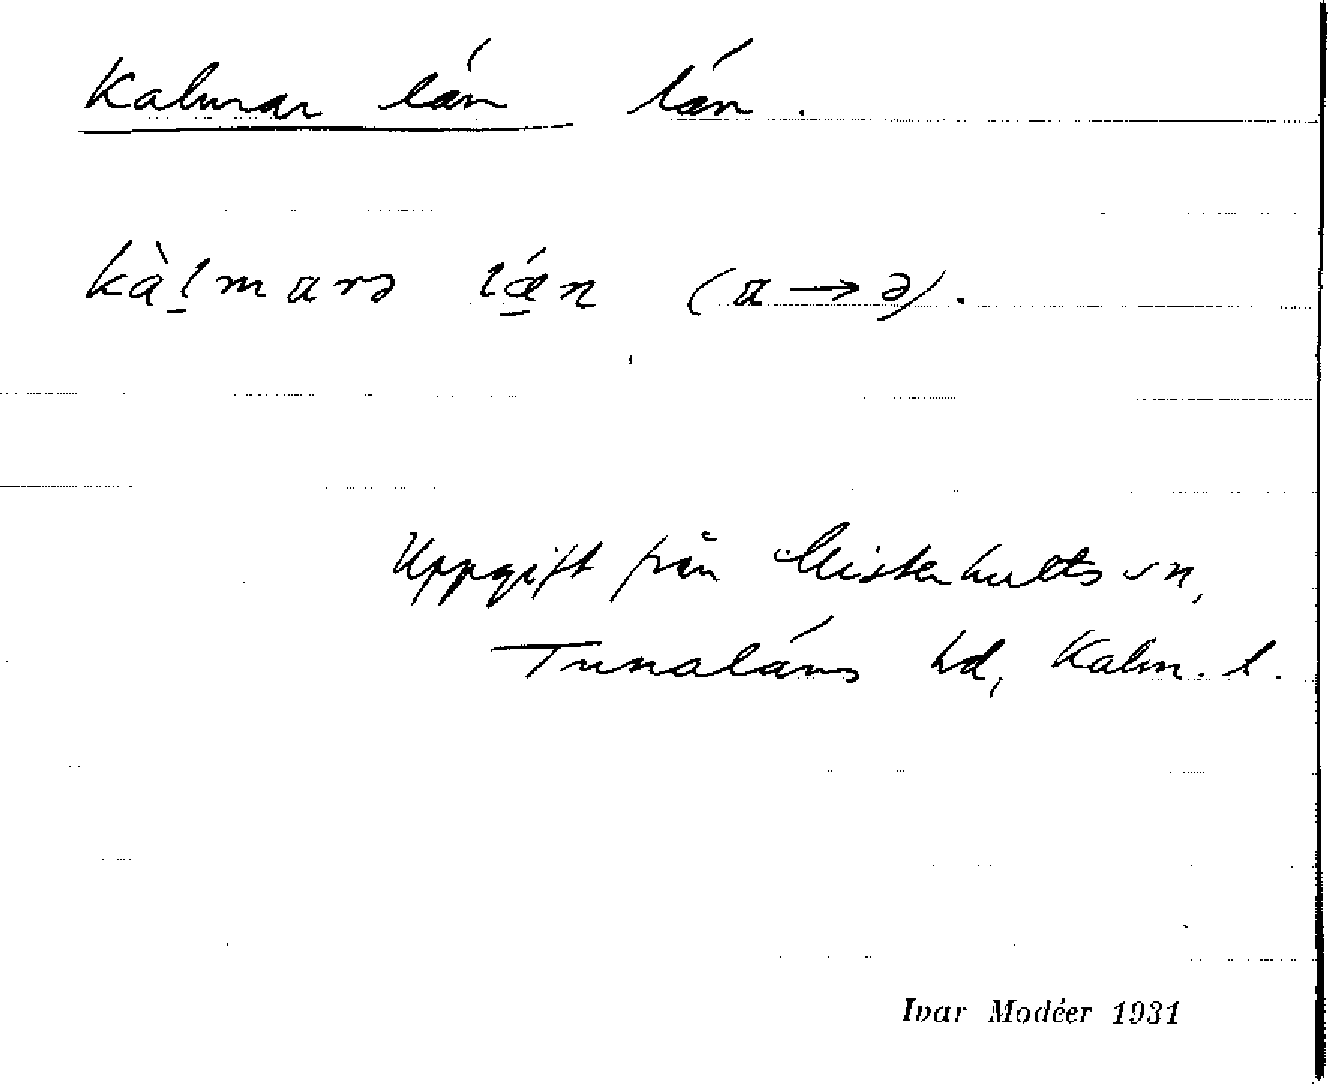 Kalmar län län.
kàl̠marə lǽ̠n (a → ə).
Uppgift från Misterhults sn,
Tunaläns hd, Kalm. l.
Ivar Modéer 1931